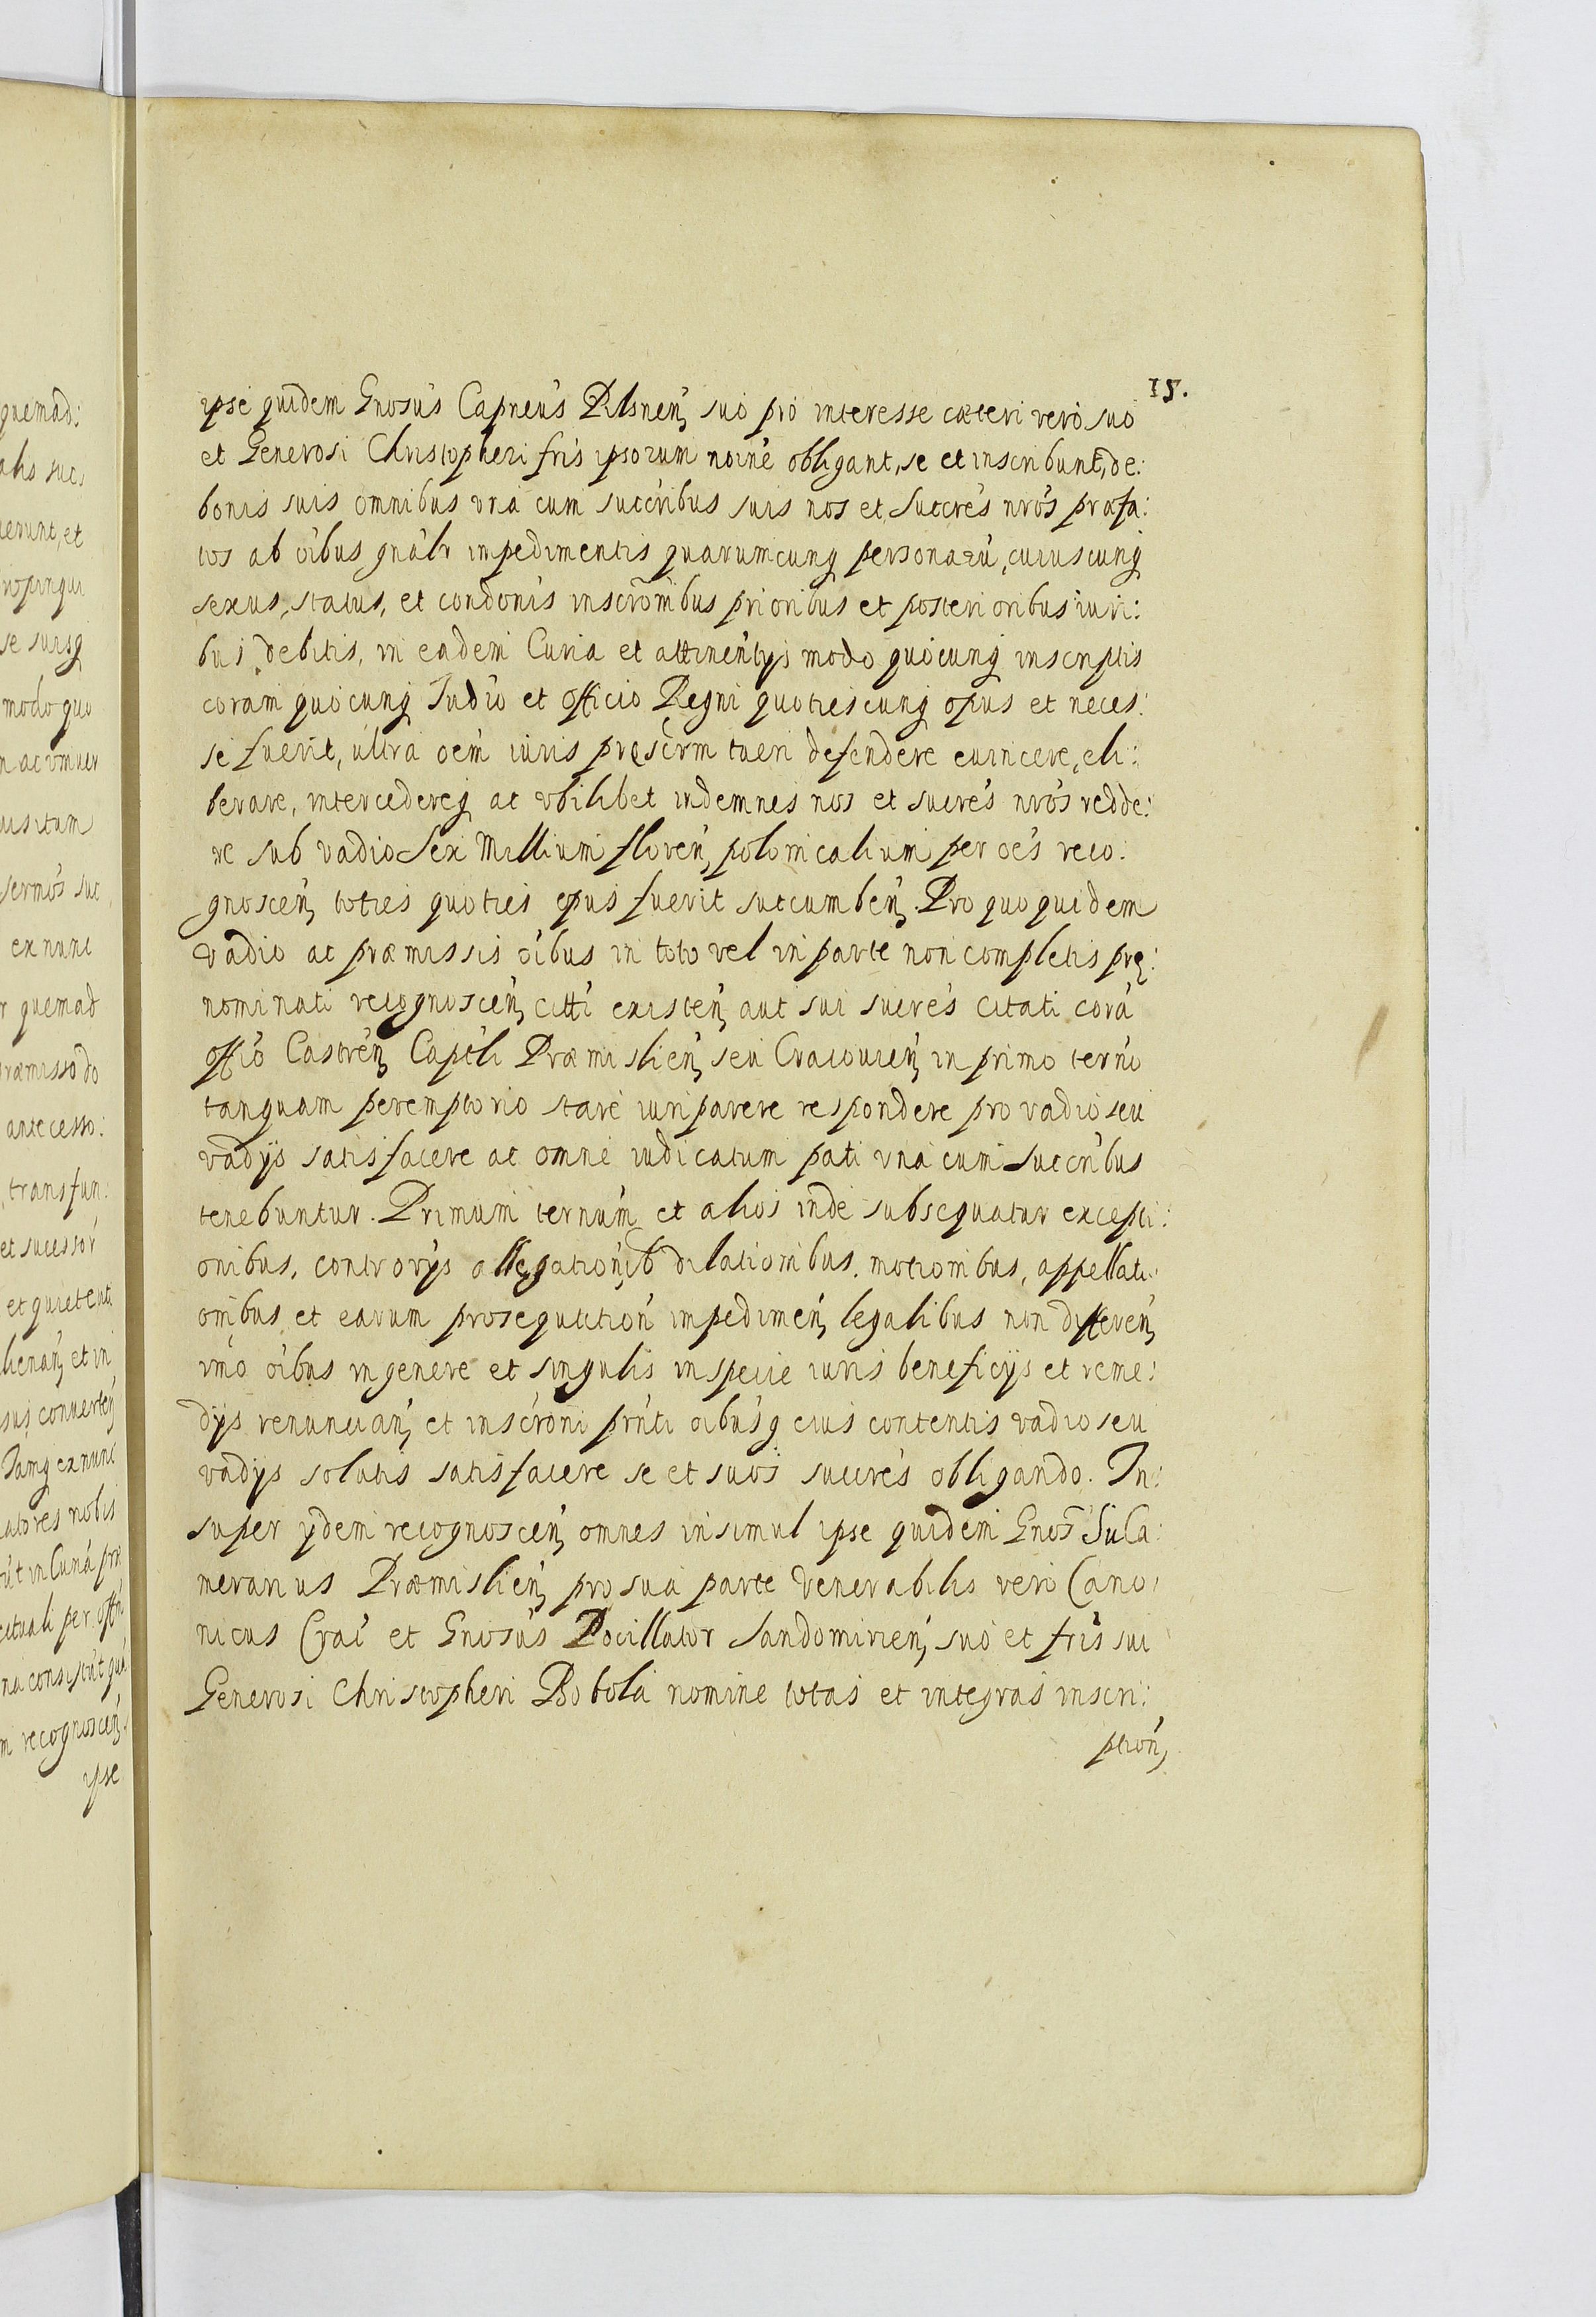 15.
ipse quidem Gnosus Capneus Pilsnen, suo pro interesse cæteri vero suo
et Generosi Christopheri fris ipsorum noine obligant, se et inscribunt, de:
bonis suis omnibus vna cum succribus suis nos et Succres nros præfa:
tos ab oibus gnalr impedimentis quarumcunq personarū, cuiuscunq
sexus, status, et condonis inscrombus prioribus et posterioribus iuri:
bus debitis, in eadem Curia et attinentijs modo quocunq inscriptis
coram quocunq Judio et officio Regni quotiescunq opus et neces:
se fuerit, ultra oem iuris pręscrm tueri defendere euincere, eli:
berare, intercedereq ac vbilibet indemnes nos et sucres nros redde:
re sub vadio Sex Millium floren, polonicalium per oes reco:
gnoscen, toties quoties opus fuerit succumben, Pro quo quidem
vadio ac præmissis oibus in toto vel in parte non completis prę:
nominati recognoscen, citti existen, aut sui sucres citati corā
offio Castren, Capitli Præmislien, seu Cracouien, in primo terno
tanquam peremptorio stare iuri parere respondere pro vadio seu
vadijs satisfacere ac omne iudicatum pati vna cum succribus
tenebuntur. Primum ternum et alios inde subsequatur excepti:
onibus, controvijs allegationib dilationibus, motionibus, appellati:
onibus et earum prosequtition impedimen, legalibus non differen,
imo oibus in genere et singulis in specie iuris beneficijs et reme:
dijs renuncian, et inscroni prnti oibusq eius contentis vadio seu
vadijs solutis satisfacere se et suos succres obligando. In:
super ijdem recognoscen, omnes insimul ipse quidem Gnos SuCa:
merarius Præmislien, pro sua parte Venerabilis vero Cano:
nicus Crac et Gnosus Pocillator Sandomirien, suo et fris sui
Generosi Christopheri Bobola nomine totas et integras inscri:
ption,
quemad:
modo quo
ex nunc
antecesso:
transfun:
et quietent
ipse